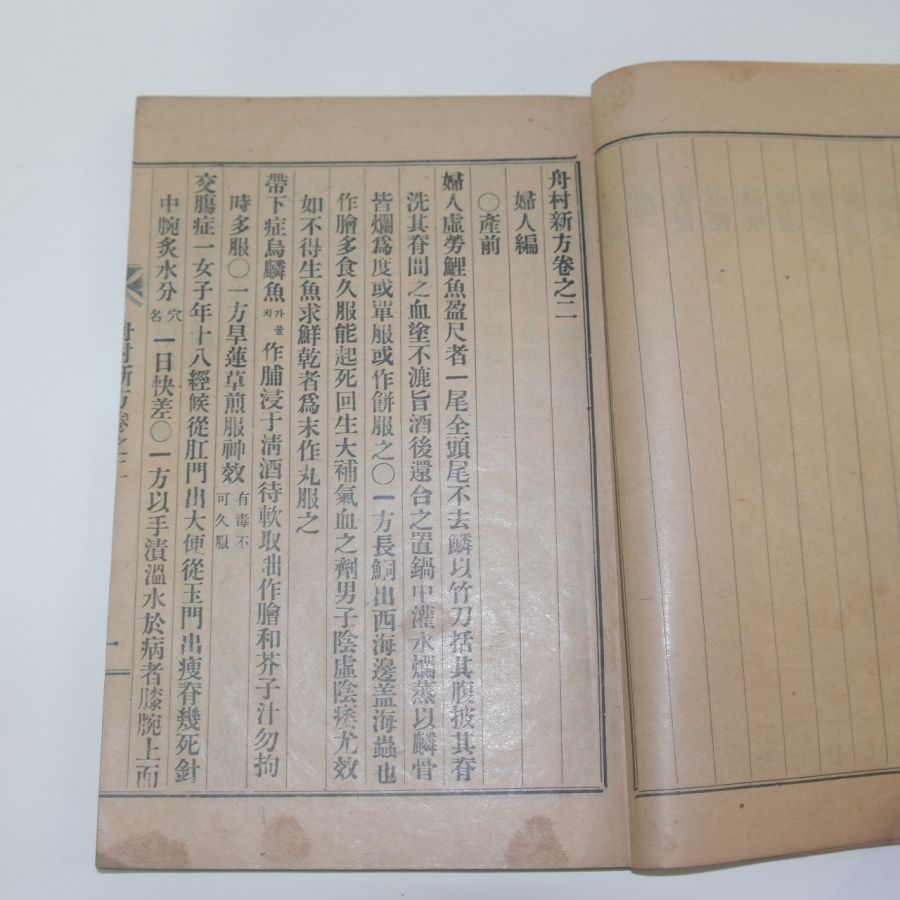 舟村新方卷之二
婦人編
〇產前
婦人虛勞鯉魚盈尺者一尾全頭尾不去鱗以竹刀括其腹披其脊
洗其脊間之血塗不漉旨酒後還合之置鍋中灌水爛蒸以鱗骨
皆爛爲度或單服或作餠服之〇一方長鮦出西海邊盖海蟲也
作膾多食久服能起死回生大補氣血之劑男子陰虛陰痿尤效
如不得生魚求鮮乾者爲末作丸服之
帶下症烏鱗魚가물치作脯浸于淸酒待軟取出作膾和芥子汁勿拘
時多服〇一方旱蓮草煎服神效有毒不可久服
交膓症一女子年十八經候從肛門出大便從玉門出瘦脊幾死針
中腕炙水分穴名一日快差〇一方以手漬溫水於病者膝腕上而
舟村新方卷之二
一